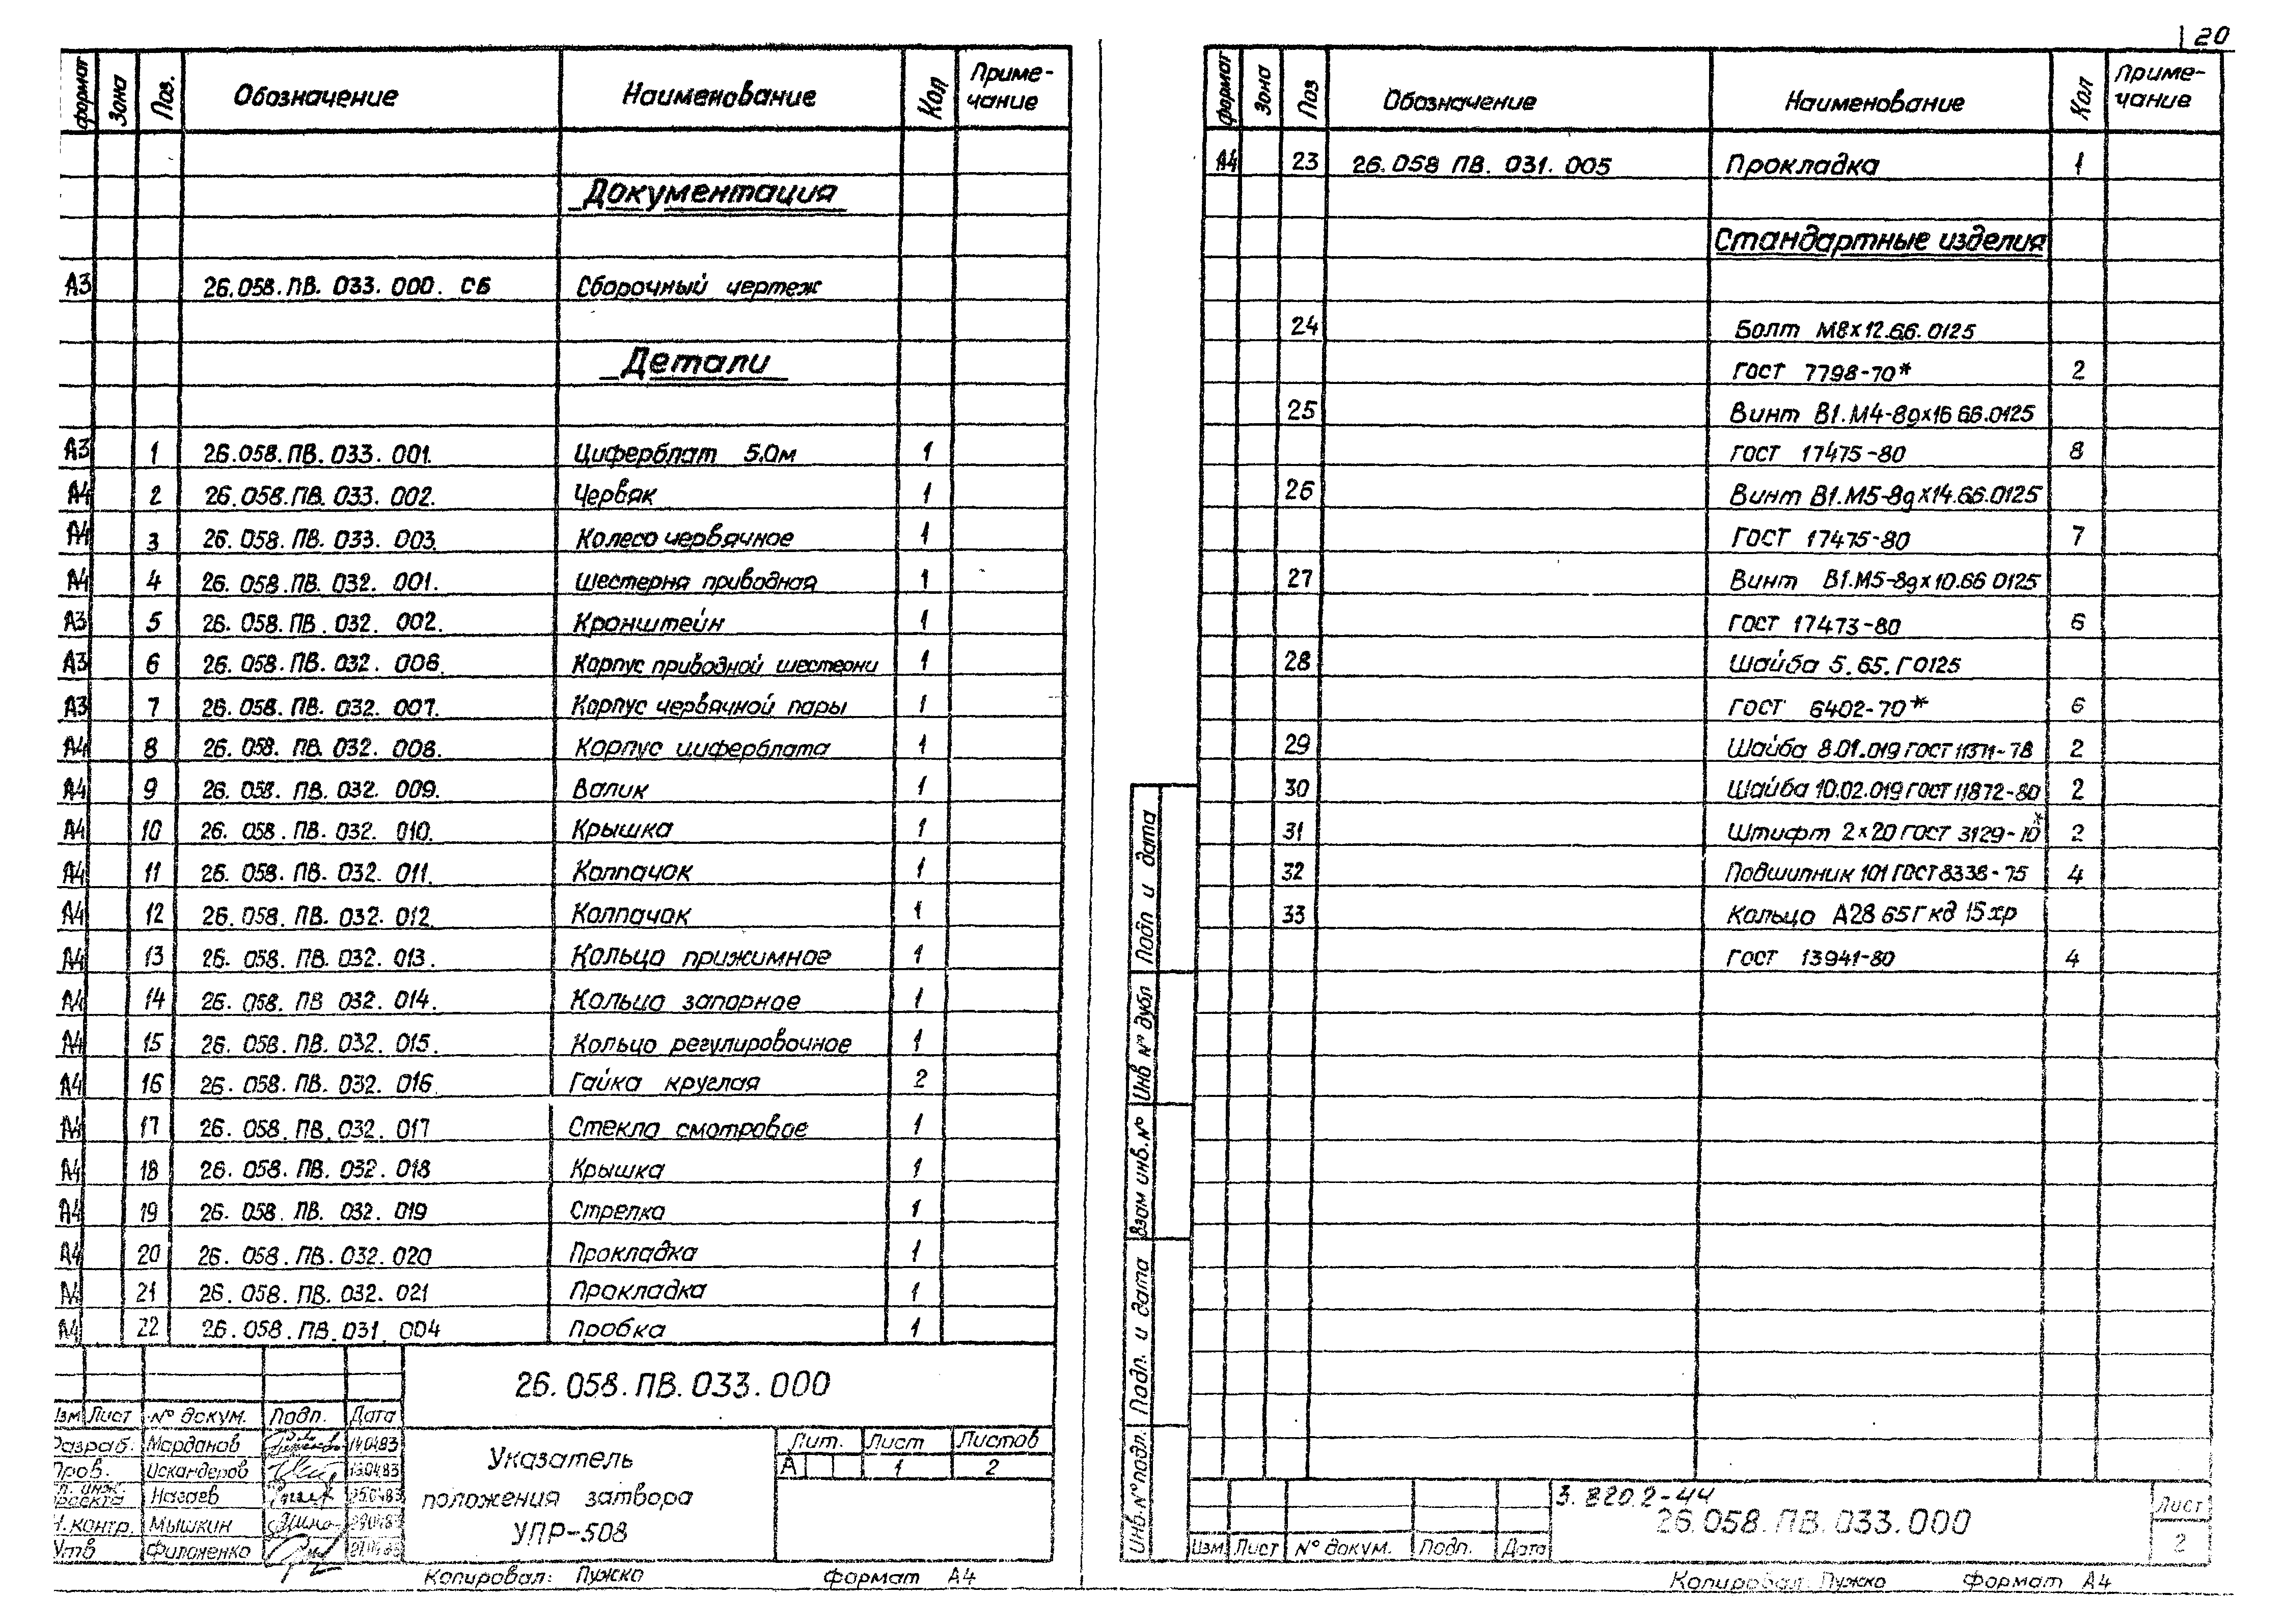 20
формат Зона Поз. Обозначение Наименование Кол Приме-
чание
Документация
А3 26.058.ПВ. 033. 000. СБ Сборочный чертеж
Детали
А3 1 26.058.ПВ. 033. 001. Циферблат 5.0м 1
А4 2 26.058.ПВ. 033. 002. Червяк 1
А4 3 26. 058. ПВ. 033. 003. Колесо червячное 1
А4 4 26. 058. ПВ. 032. 001. Шестерня приводная 1
А3 5 26. 058. ПВ. 032. 002. Кронштейн 1
А3 6 26. 058. ПВ. 032. 006. Корпус приводной шестерни 1
А3 7 26. 058. ПВ. 032. 007. Корпус червячной пары 1
А4 8 26. 058. ПВ. 032. 008. Корпус циферблата 1
А4 9 26. 058. ПВ. 032. 009. Валик 1
А4 10 26. 058. ПВ. 032. 010. Крышка 1
А4 11 26. 058. ПВ. 032. 011. Колпачок 1
А4 12 26. 058. ПВ. 032. 012. Колпачок 1
А4 13 26. 058. ПВ. 032. 013. Кольцо прижимное 1
А4 14 26. 058. ПВ 032. 014. Кольцо запорное 1
А4 15 26. 058. ПВ. 032. 015. Кольцо регулировочное 1
А4 16 26. 058. ПВ. 032. 016. Гайка круглая 2
А4 17 26. 058. ПВ. 032. 017 Стекло смотровое 1
А4 18 26. 058. ПВ. 032. 018 Крышка 1
А4 19 26. 058. ПВ. 032. 019 Стрелка 1
А4 20 26. 058. ПВ. 032. 020 Прокладка 1
А4 21 26. 058. ПВ. 032. 021 Прокладка 1
А4 22 26. 058. ПВ. 031. 004 Пробка 1
26. 058. ПВ. 033. 000
Изм Лист № докум. Подп. Дата
Разраб. Марданов 14.04.83
Пров. Искандеров 15.04.83
Гл. инж. проекта Нагаев 25.04.83
Н. контр. Мышкин 29.04.83
Утв Филоненко
Указатель
положения затвора
УПР-508
Лит. Лист Листов
А 1 2
Копировал: Пужко Формат А4
формат Зона Поз Обозначение Наименование Кол Приме-
чание
А4 23 26. 058 ПВ. 031. 005 Прокладка 1
Стандартные изделия
24 Болт М8х12.66. 0125
ГОСТ 7798-70* 2
25 Винт В1.М4-8gх16 66.0125
ГОСТ 17475-80 8
26 Винт В1.М5-8gх14.66.0125
ГОСТ 17475-80 7
27 Винт В1.М5-8gх10.66 0125
ГОСТ 17473-80 6
28 Шайба 5. 65. Г 0125
ГОСТ 6402-70* 6
29 Шайба 8.01.019 ГОСТ 11371-78 2
30 Шайба 10.02.019 ГОСТ 11872-80 2
31 Штифт 2х20 ГОСТ 3129-70* 2
32 Подшипник 101 ГОСТ 8338-75 4
33 Кольцо А28 65Г кд 15хр
ГОСТ 13941-80 4
Подп и дата
Инв № дубл
Взам инв. №
Подп. и дата
Инв. № подл.
3. 820.2-44
26.058. ПВ. 033. 000
Лист
2
Изм Лист № докум. Подп. Дата
Копировал Пужко Формат А4